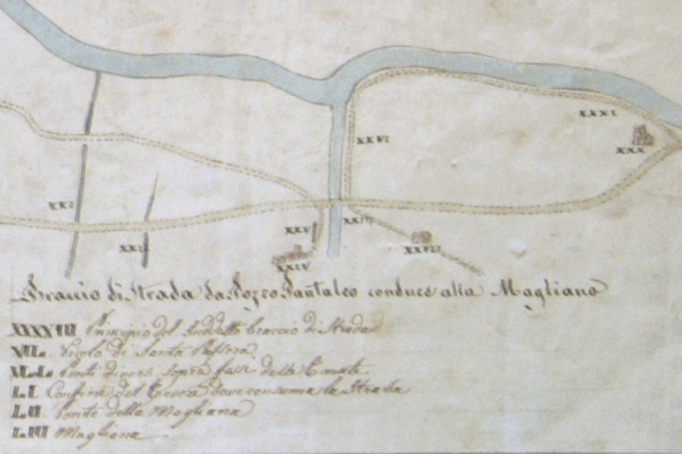 XXXI
XXX
XXVI
XXI
XXVII
XXV
XXIV
Braccio di Strada da Pozzo Pantaleo conduce alla Magliana
XXXXVIII Principio del Sudetto braccio di Strada
Vicolo di Santa Passera
Ponti diversi sopra
L.I Confine del dove consuma la Strada
L.II Ponte della Magliana
L.III Magliana